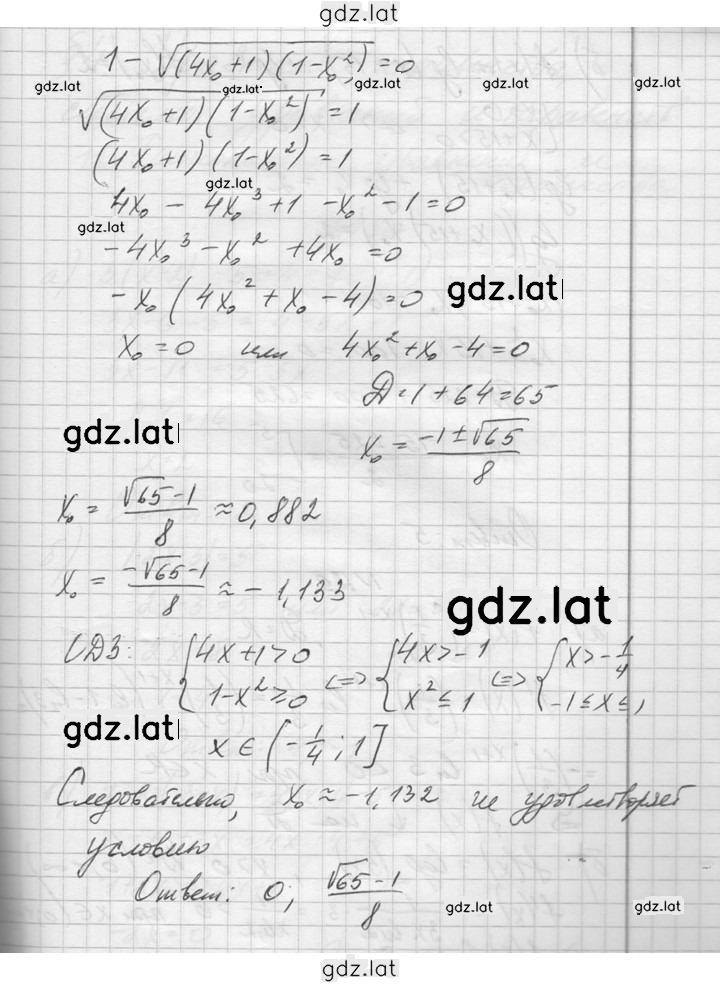 gdz.lat
1 - √((4x₀+1)(1-x₀²)) = 0
gdz.lat gdz.lat gdz.lat gdz.lat gdz.lat
√((4x₀+1)(1-x₀²)) = 1
(4x₀+1)(1-x₀²) = 1
gdz.lat
4x₀ - 4x₀³ + 1 - x₀² - 1 = 0
gdz.lat
-4x₀³ - x₀² + 4x₀ = 0
-x₀(4x₀² + x₀ - 4) = 0
gdz.lat
x₀ = 0 или 4x₀² + x₀ - 4 = 0
Д = 1 + 64 = 65
gdz.lat
x₀ = (-1 ± √65)/8
x₀ = (√65 - 1)/8 ≈ 0,882
x₀ = (-√65 - 1)/8 ≈ -1,133
gdz.lat
ОДЗ: {4x+1>0 1-x²≥0 <=> {4x>-1 x²≤1 <=> {x>-1/4 -1≤x≤1
gdz.lat
x ∈ (-1/4; 1]
Следовательно, x₀ ≈ -1,132 не удовлетворяет
условию
Ответ: 0; (√65 - 1)/8
gdz.lat gdz.lat
gdz.lat